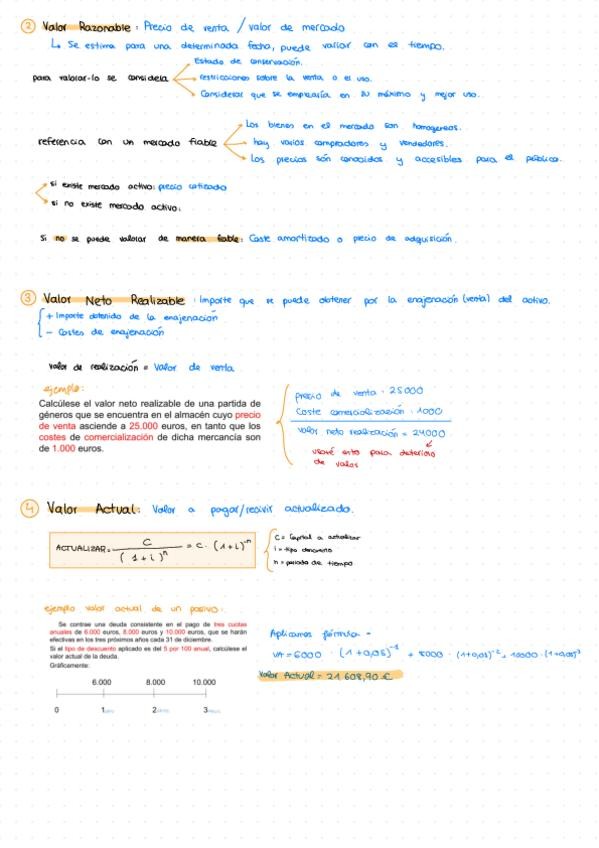 2 Valor Razonable: Precio de venta / valor de mercado
↳ Se estima para una determinada fecha, puede variar con el tiempo.
Estado de conservación.
para valorar-lo se considera
restricciones sobre la venta o el uso.
Considerar que se emplearía en su máximo y mejor uso.
Los bienes en el mercado son homogéneos.
referencia con un mercado fiable
hay varios compradores y vendedores.
Los precios són conocidos y accesibles para el público.
si existe mercado activo: precio cotizado
si no existe mercado activo:
Si no se puede valorar de manera fiable: Coste amortizado o precio de adquisición.
3 Valor Neto Realizable: Importe que se puede obtener por la enajenación (venta) del activo.
+ Importe obtenido de la enajenación
- Costes de enajenación
valor de realización = Valor de venta
ejemplo:
Calcúlese el valor neto realizable de una partida de
géneros que se encuentra en el almacén cuyo precio
de venta asciende a 25.000 euros, en tanto que los
costes de comercialización de dicha mercancía son
de 1.000 euros.
precio de venta = 25000
Coste comercialización = 1000
valor neto realización = 24000
usaré esto para deterioro
de valor
4 Valor Actual: Valor a pagar/recivir actualizado.
ACTUALIZAR = C / (1+i)^n = C · (1+i)^-n
C = Capital a actualizar
i = tipo descuento
n = periodo de tiempo
ejemplo valor actual de un pasivo:
Se contrae una deuda consistente en el pago de tres cuotas
anuales de 6.000 euros, 8.000 euros y 10.000 euros, que se harán
efectivas en los tres próximos años cada 31 de diciembre.
Si el tipo de descuento aplicado es del 5 por 100 anual, calcúlese el
valor actual de la deuda.
Gráficamente:
6.000 8.000 10.000
0 1 2 3
Aplicamos fórmula =
VA = 6000 · (1+0,05)^-1 + 8000 · (1+0,05)^-2 + 10000 · (1+0,05)^-3
Valor Actual = 21 608,90 €